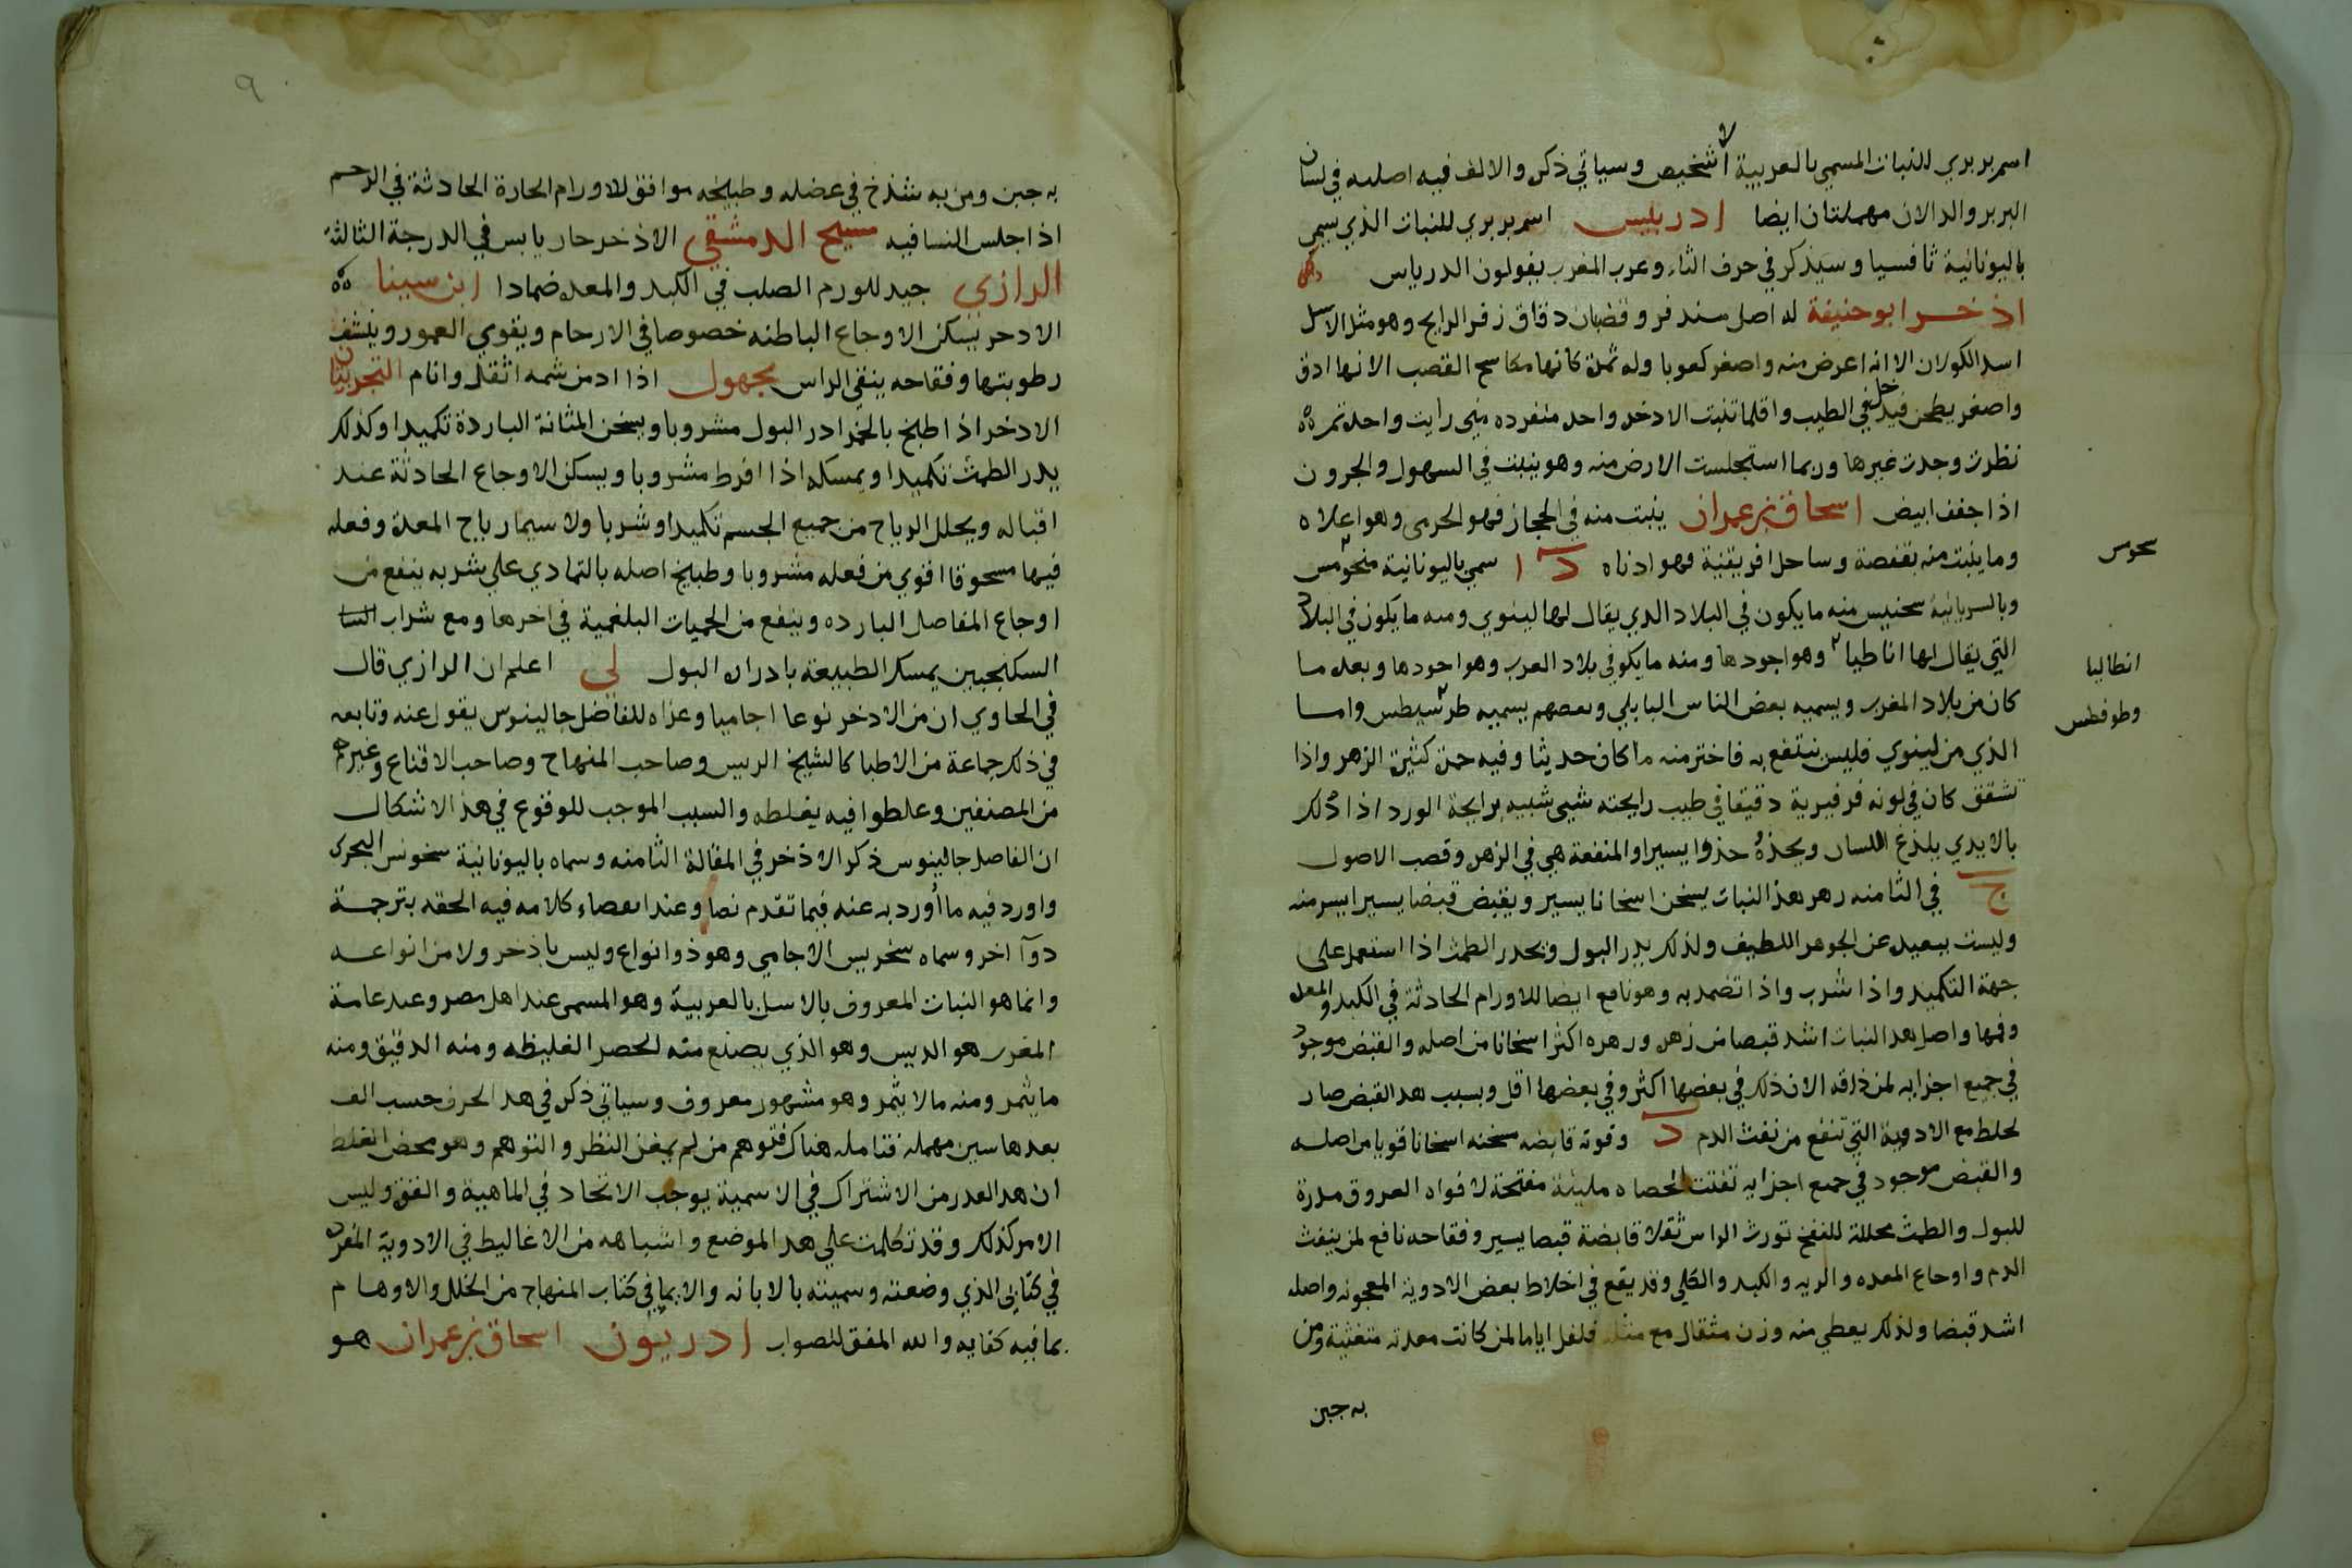 اسم بربري للنبات المسمي بالعربية اشخيص وسياتي ذكره والالف فيه اصليه في لسان
البربر والدالان مهملتان ايضا ادريس اسم بربري للنبات الذي يسمي
باليونانية ثافسيا وسيذكر في حرف الثاء وعرب المغرب يقولون الدرياس
اذخر ابو حنيفة له اصل مندفر وقضبان دقاق زفر الرايح وهو مثل الاسل
اسل الكولان الا انه اعرض منه واصغر كعوبا وله ثمرة كانها مكاسح القصب الا انها ادق
واصغر يطحن فيدخل في الطيب واقلما تنبت الادخر واحد منفرده متى رايت واحده ثم
نظرت وجدت غيرها وربما استجلست الارض منه وهو ينبت في السهول والحرون
اذا جفف ابيض اسحاق بن عمران ينبت منه في الحجاز فهو الحرمى وهو اعلاه
وما ينبت منه بقفصة وساحل افريقية فهو ادناه د ا سمي باليونانية منحومس
سحوس
وبالسريانية سخنيس منه ما يكون في البلاد الدي يقال لها لينوي ومنه ما يكون في البلاد
التي يقال لها اناطيا وهو اجودها ومنه ما يكو في بلاد العرب وهو احودها وبعده ما
انطاليا
كان من بلاد المغرب ويسميه بعض الناس البابلي وبعضهم يسميه طرسيطس واما
وطوفطس
الذي من لينوي فليس ينتفع به فاختر منه ما كان حديثا وفيه حمرة كثيرة الزهر واذا
تشقق كان في لونه فرفيرية دقيقا في طيب رايحته شيى شبيه برايحة الورد اذا دلك
بالايدي يلذع اللسان ويحذه حذوا يسيرا والمنفعة هي في الزهره وقصب الاصول
ج في الثامنه زهر هذ النبات يسخن اسخانا يسير ويقبض قبضا يسيرا ايسر منه
وليست ببعيد عن الجوهر اللطيف ولذلك يدر البول ويحدر الطمث اذا استعمل على
جهة التكميد واذا شرب واذا تضمد به وهو نافع ايضا للاورام الحادثة في الكبد والمعده
وفمها واصل هد النبات اشد قبضا من زهره وزهره اكثر اسخانا من اصله والقبض موجود
في جميع اجزايه لمن ذاقه الا ان ذلك في بعضها اكثر وفي بعضها اقل وبسبب هد القبض صار
يخلط مع الادوية التي تنفع من نفث الدم د وقوته قابضه مسخنه اسخانا قويا من اصله
والقبض موجود في جميع اجزايه تفتت الحصاه مليئة مفتحة لافواه العروق مدرة
للبول والطمث محللة للنفخ تورث الراس ثقلا قابضة قبضا يسير وفقاحه نافع لمن ينفث
الدم واوجاع المعده والريه والكبد والكلي وقد يقع في اخلاط بعض الادوية المعجونه واصله
اشد قبضا ولذلك يعطي منه وزن مثقال مع مثله فلفل اياما لمن كانت معدته متغثية ومن
به جبن
٩
به جبن ومن به شذخ في عضله وطبيخه موافق للاورام الحارة الحادثة في الرحم
اذا جلس النسا فيه مسيح الدمشقي الاذخر حار يابس في الدرجة الثالثة
الرازي جيد للورم الصلب في الكبد والمعده ضمادا ابن سينا
الادحر يسكن الاوجاع الباطنه خصوصا في الارحام ويقوي العمور وينشف
رطوبتها وفقاحه ينقي الراس مجهول اذا ادمن شمه اثقل وانام التجربتان
الادخر اذا طبخ بالخمر ادر البول مشروبا ويسخن المثانة الباردة تكميدا وكذلك
يدر الطمث تكميدا ويمسكه اذا افرط مشروبا ويسكن الاوجاع الحادثة عند
اقباله ويحلل الرياح من جميع الجسم تكميدا وشربا ولا سيما رياح المعدة وفعله
فيها مسحوقا اقوي من فعله مشروبا وطبيخ اصله بالتمادي علي شربه ينفع من
اوجاع المفاصل البارده وينفع من الحميات البلغمية في اخرها ومع شراب
السكنجبين يمسك الطبيعة بادراره البول لي اعلم ان الرازي قال
في الحاوي ان من الادخر نوعا اجاميا وعزاه للفاضل جالينوس يقول عنه وتابعه
في ذلك جماعة من الاطبا كالشيخ الرييس وصاحب المنهاج وصاحب الاقناع وغيرهم
من المصنفين وغلطوا فيه بغلطه والسبب الموجب للوقوع في هذ الاشكال
ان الفاضل جالينوس ذكر الاذخر في المقالة الثامنه وسماه باليونانية سخونس البحرى
واورد فيه ما أورد به عنه فيما تقدم نصا وعند انقضاء كلامه فيه الحقه بترجمة
دوآ اخر وسماه سخرييس الاجامي وهو ذو انواع وليس باذخر ولا من انواعه
وانما هو النبات المعروف بالاسل بالعربية وهو المسمى عند اهل مصر وعند عامة
المغرب هو الديس وهو الذي يصنع منه الحصر الغليظه ومنه الدقيق ومنه
ما يثمر ومنه ما لا يثمر وهو مشهور معروف وسياتي ذكره في هد الحرف حسب الف
بعدها سين مهمله فتامله هناك فتوهم من لم يمعن النظر والتوهم وهو محض الغلط
ان هد القدر من الاشتراك في الاسمية يوجب الاتحاد في الماهية والقوة وليس
الامر كذلك وقد تكلمت علي هد الموضع واشباهه من الاغاليط في الادوية المفرده
في كتابى الذي وضعته وسميته بالابانه والاعلام بما في كتاب المنهاج من الخلل والاوهام
بما فيه كفايه والله الموفق للصواب ادريون اسحاق بن عمران هو